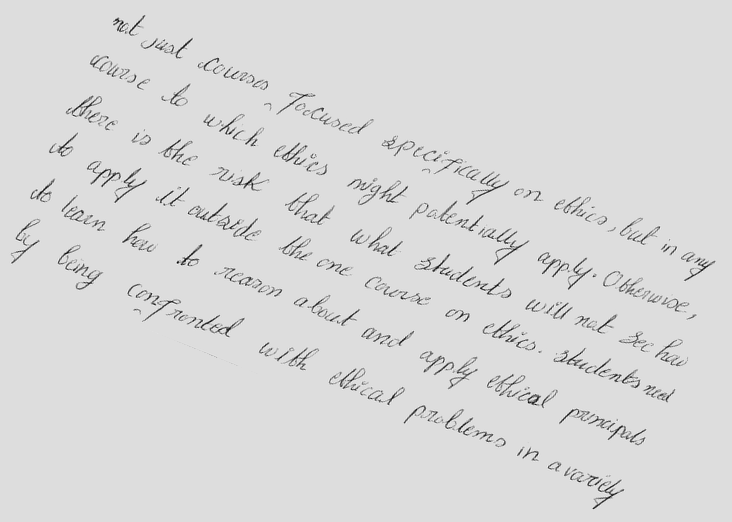 not just courses focused specifically on ethics, but in any
course to which ethics might potentially apply. Otherwise,
there is the risk that what students will not see how
to apply it outside the one course on ethics. Students need
to learn how to reason about and apply ethical principals
by being confronted with ethical problems in a variety